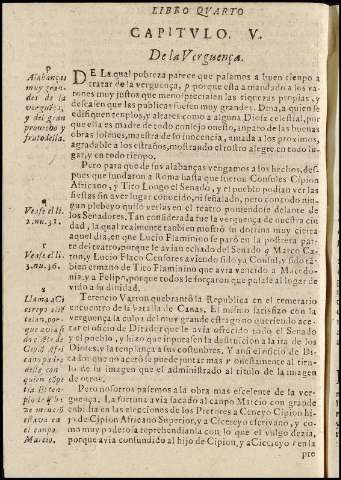 LIBRO QVARTO
CAPITVLO. V.
De la Verguença.
p
Alabanças
muy gran-
des de la
verguença,
y del gran
prouecho y
fruto della.
DE La qual pobreza parece que pasamos a buen tienpo a
tratar de la verguença, y porque esta a mandado a los va-
rones muy justos que menosprecien las riquezas propias, y
desseassen que las publicas fuesen muy grandes. Dina, a quien se
edifiquen templos, y altares como a alguna Diosa celestial, por
que ella es madre de todo consejo onesto, anparo de las buenas
obras, maestra de la inocencia, amada a los proximos,
agradable a los estraños, mostrando el rostro alegre en todo lu-
gar, y en todo tienpo.
Pero para que de sus alabanças vengamos a los hechos, des-
pues que fundaron a Roma hasta que fueron Consules Cipion
Africano, y Tito Longo el Senado, y el pueblo podian ver las
fiestas sin aver lugar conocido, ni señalado, pero con todo nin-
gun plebeyo quiso verlas en el teatro poniendose delante de
los Senadores. Tan considerada fue la verguença de nuestra ciu-
dad, la qual realmente tanbien mostrò su dotrina muy cierta
aquel dia, en que Lucio Flaminio se parò en la postrera par-
te del teatro, porque le avian echado del Senado Marco Ca-
ton, y Lucio Flaco Censores aviendo sido ya Consul, y sido ta-
bien ermano de Tito Flaminino que avia vencido a Macedo-
nia, y a Felipo, porque todos le forçaron que pasase al lugar de
vido a su dinidad.
q
Vease el li.
2. nu. 31.
r
Vease el li.
3. nu. 36.
Terencio Varron quebrantò la Republica en el temerario
encuentro de la batalla de Canas, El mismo satisfizo con la
verguença la culpa del muy grande estrago no queriendo ace-
tar el oficio de Ditador que le avia ofrecido todo el Senado
y el pueblo, y hizo que inputasen la destituicion a la ira de los
Dioses, y la tenplança a sus costunbres. Y ansi el oficio de Di-
tador que no acetò se puede juntar mas onestamente al titu-
lo de su imagen que el administrado al titulo de la imagen
de otros.
s
Llama a Ci
cereyo
porque
Pero nosotros pasemos a la obra mas escelente de la ver-
guença. La fortuna avia sacado al canpo Marcio con grande
enbidia en las elecciones de los Pretores a Ceneyo Cipion hi-
jo de Cipion Africano Superior, y a Cicereyo escrivano, y co-
mo muy poderosa reprehendianla con lo que el vulgo dezia,
porque avia confundido al hijo de Cipion, y a Cicereyo en la
pre